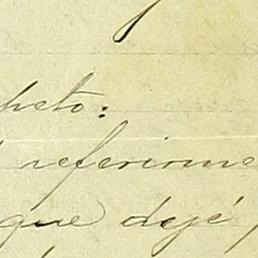 heto:
referirme
que dejé